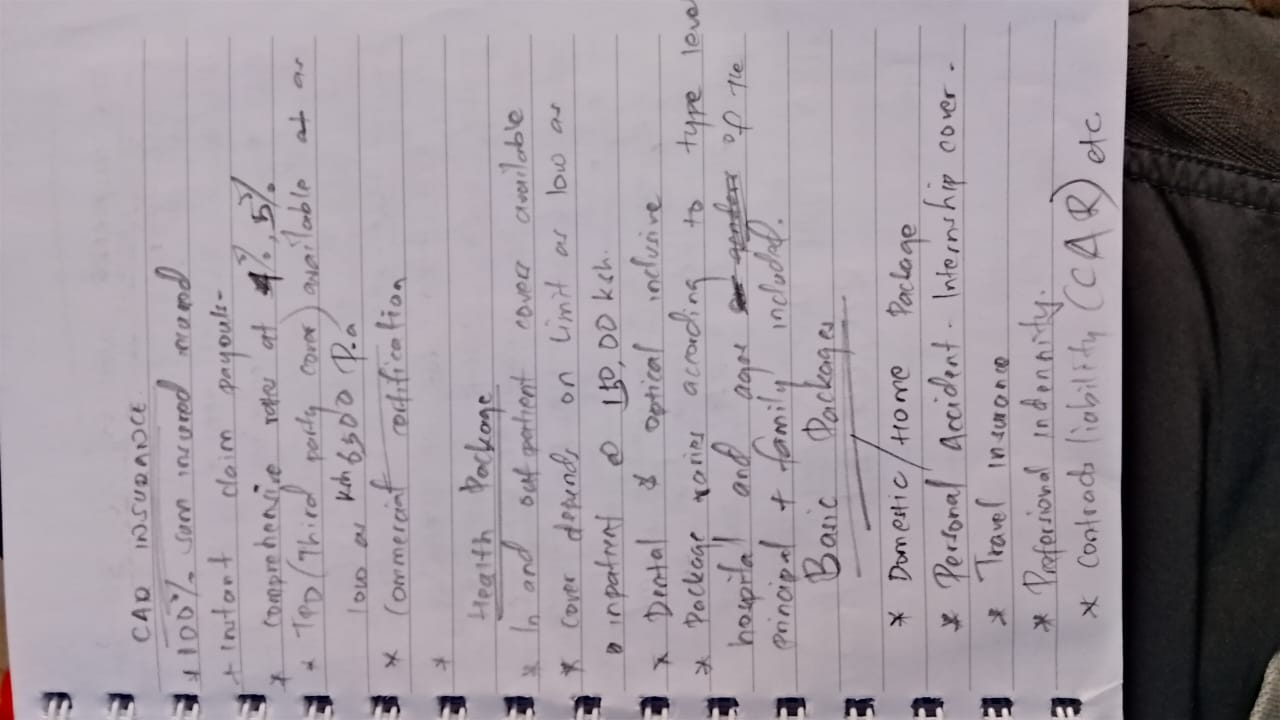 CAR INSURANCE
* 100% sum insured
+ instant claim payouts-
* comprehensive rates at 4%, 5%
* TPO (Third party cover) available at as
low as Ksh 6500 P.a
* Commercial certification
*
Health Package
* In and out patient covers available
* cover depends on limit as low as
inpatient @ 150,00 ksh.
* Dental & optical inclusive
* Package varies according to type level
hospital and ages of the
principal + family included.
Basic Packages
* Domestic/Home Package
* Personal Accident - Internship cover.
* Travel insurance
* Professional indennity.
* Contracts liability (CAR) etc